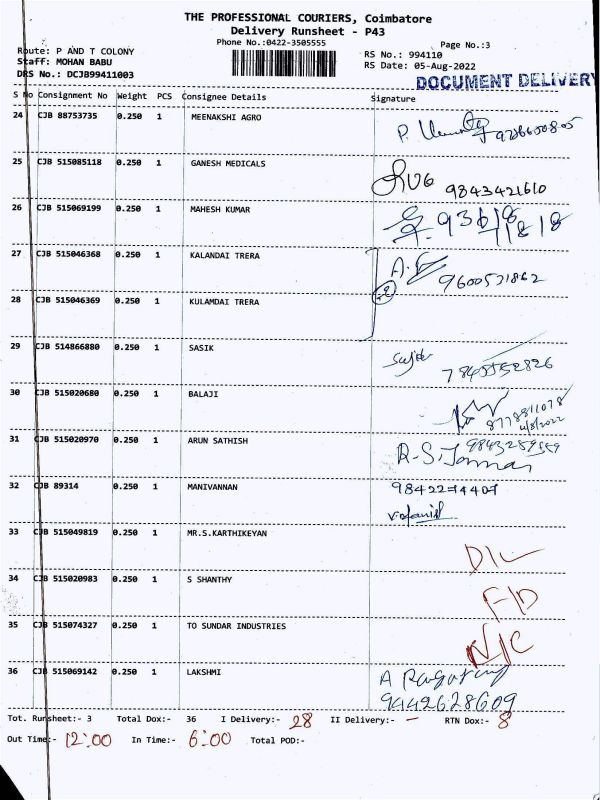 THE PROFESSIONAL COURIERS, Coimbatore
Delivery Runsheet - P43
Phone No.:0422-3505555
Page No.:3
Route: P AND T COLONY
RS No.: 994110
Staff: MOHAN BABU
RS Date: 05-Aug-2022
DRS No.: DCJB99411003
DOCUMENT DELIVERY
S No Consignment No Weight PCS Consignee Details Signature
24 CJB 88753735 0.250 1 MEENAKSHI AGRO
P.
25 CJB 515085118 0.250 1 GANESH MEDICALS
9843421610
26 CJB 515069199 0.250 1 MAHESH KUMAR
27 CJB 515046368 0.250 1 KALANDAI TRERA
9600531862
28 CJB 515046369 0.250 1 KULAMDAI TRERA
29 CJB 514866880 0.250 1 SASIK
30 CJB 515020680 0.250 1 BALAJI
8778811078
4/8/2022
31 CJB 515020970 0.250 1 ARUN SATHISH
R.S.
32 CJB 89314 0.250 1 MANIVANNAN
9842274407
33 CJB 515049819 0.250 1 MR.S.KARTHIKEYAN
D/L
34 CJB 515020983 0.250 1 S SHANTHY
F/D
35 CJB 515074327 0.250 1 TO SUNDAR INDUSTRIES
N/C
36 CJB 515069142 0.250 1 LAKSHMI
A
9442628609
Tot. Runsheet:- 3 Total Dox:- 36 I Delivery:- 28 II Delivery:- - RTN Dox:- 8
Out Time:- 12:00 In Time:- 6:00 Total POD:-